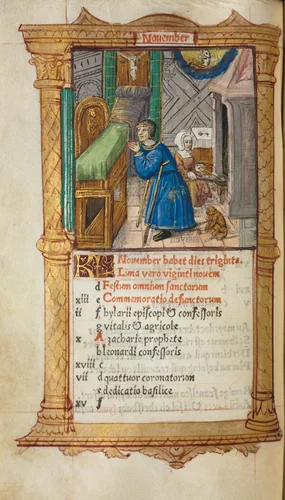 November
November habet dies triginta
Luna vero viginti novem
d Festum omnium sanctorum
xiii e Commemoratio defunctorum
ii f hylarii episcopi & confessoris
g vitalis & agricole
x A zacharie prophete
b leonardi confessoris
xviii c
vii d quattuor coronatorum
e dedicatio basilice
xv f